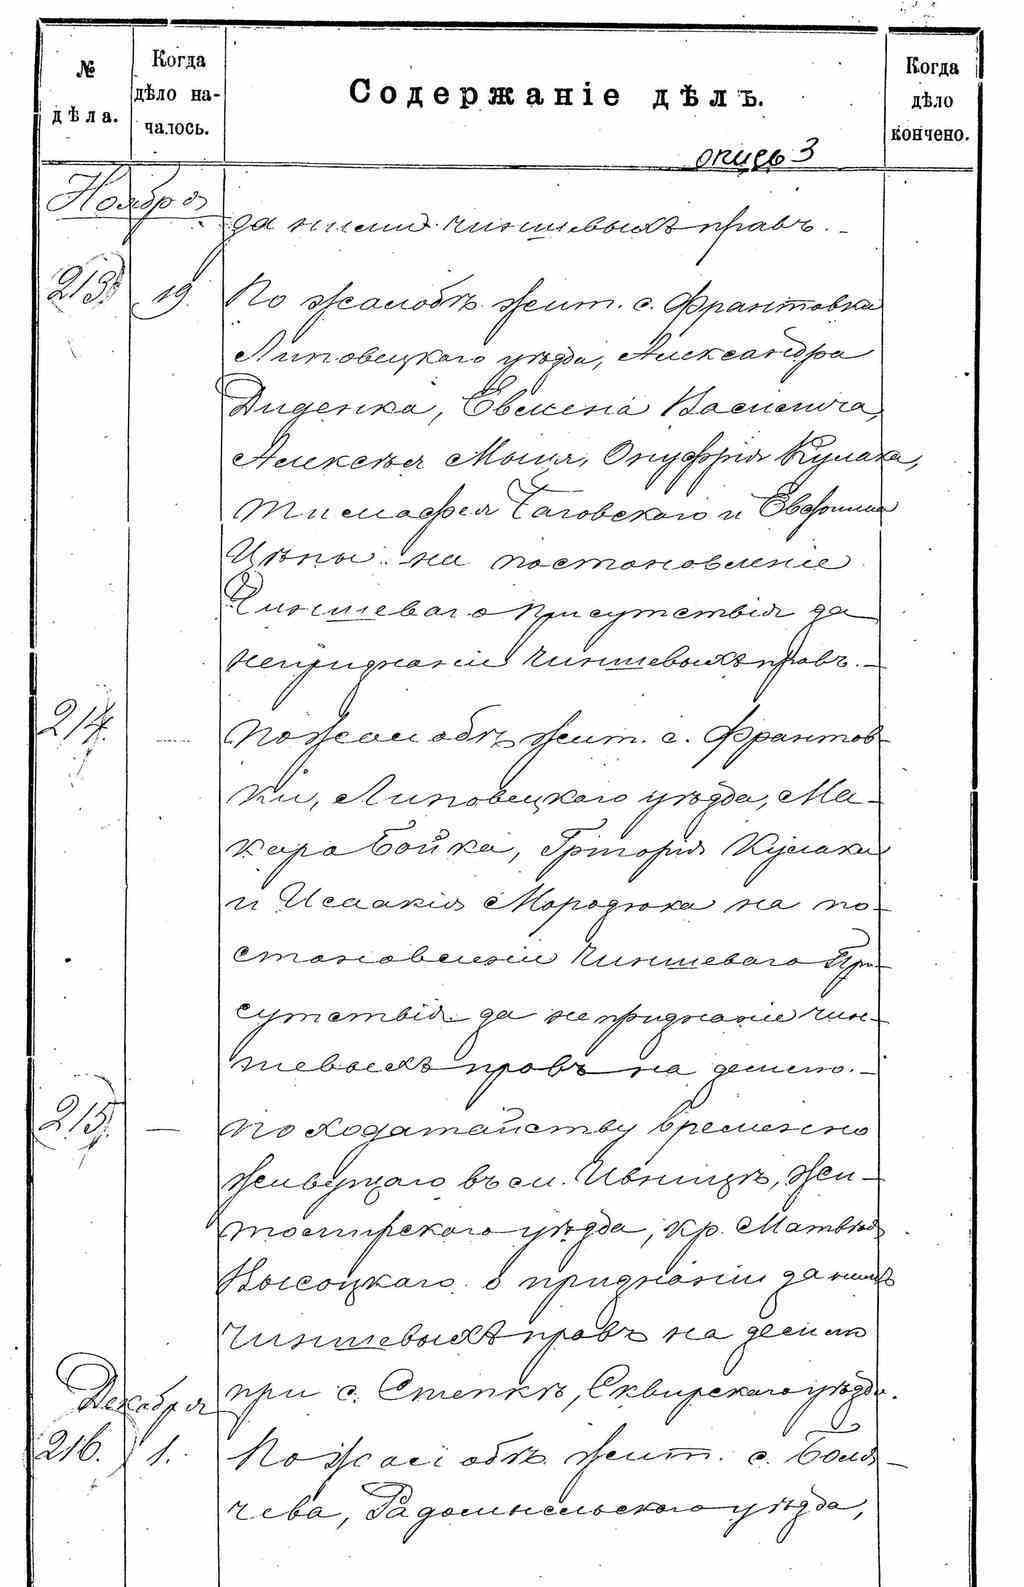 № дѣла.
Когда дѣло началось.
Содержаніе дѣлъ.
Когда дѣло кончено.
опись 3
Ноября
за ними чиншевыхъ правъ. –
213. 19. По жалобѣ жит. с. Франтовка
Липовецкаго уѣзда, Александра
Диденка, Евменія Василича,
Алексѣя Мыця, Онуфрія Кулака,
Тимофея Чаговскаго и Евфима
Цѣпы на постановленіе
Чиншеваго Присутствія за
непризнаніи чиншевыхъ правъ. –
214. По жалобѣ жит. с. Франтов-
ки, Липовецкаго уѣзда, Ма-
кара Бойка, Григорія Кулака
и Исаакія Мородюка на по-
становленіи Чиншеваго При-
сутствія за непризнаніе чин-
шевыхъ правъ на землю. –
215. — По ходатайству временно
живущаго въ м. Ивницѣ, Жи-
томирскаго уѣзда, кр. Матвѣя
Высоцкаго о признаніи за нимъ
чиншевыхъ правъ на землю
при с. Степкѣ, Сквирскаго уѣзда.
Декабря
216. 1. По жалобѣ жит. с. Боля-
чева, Радомысльскаго уѣзда,